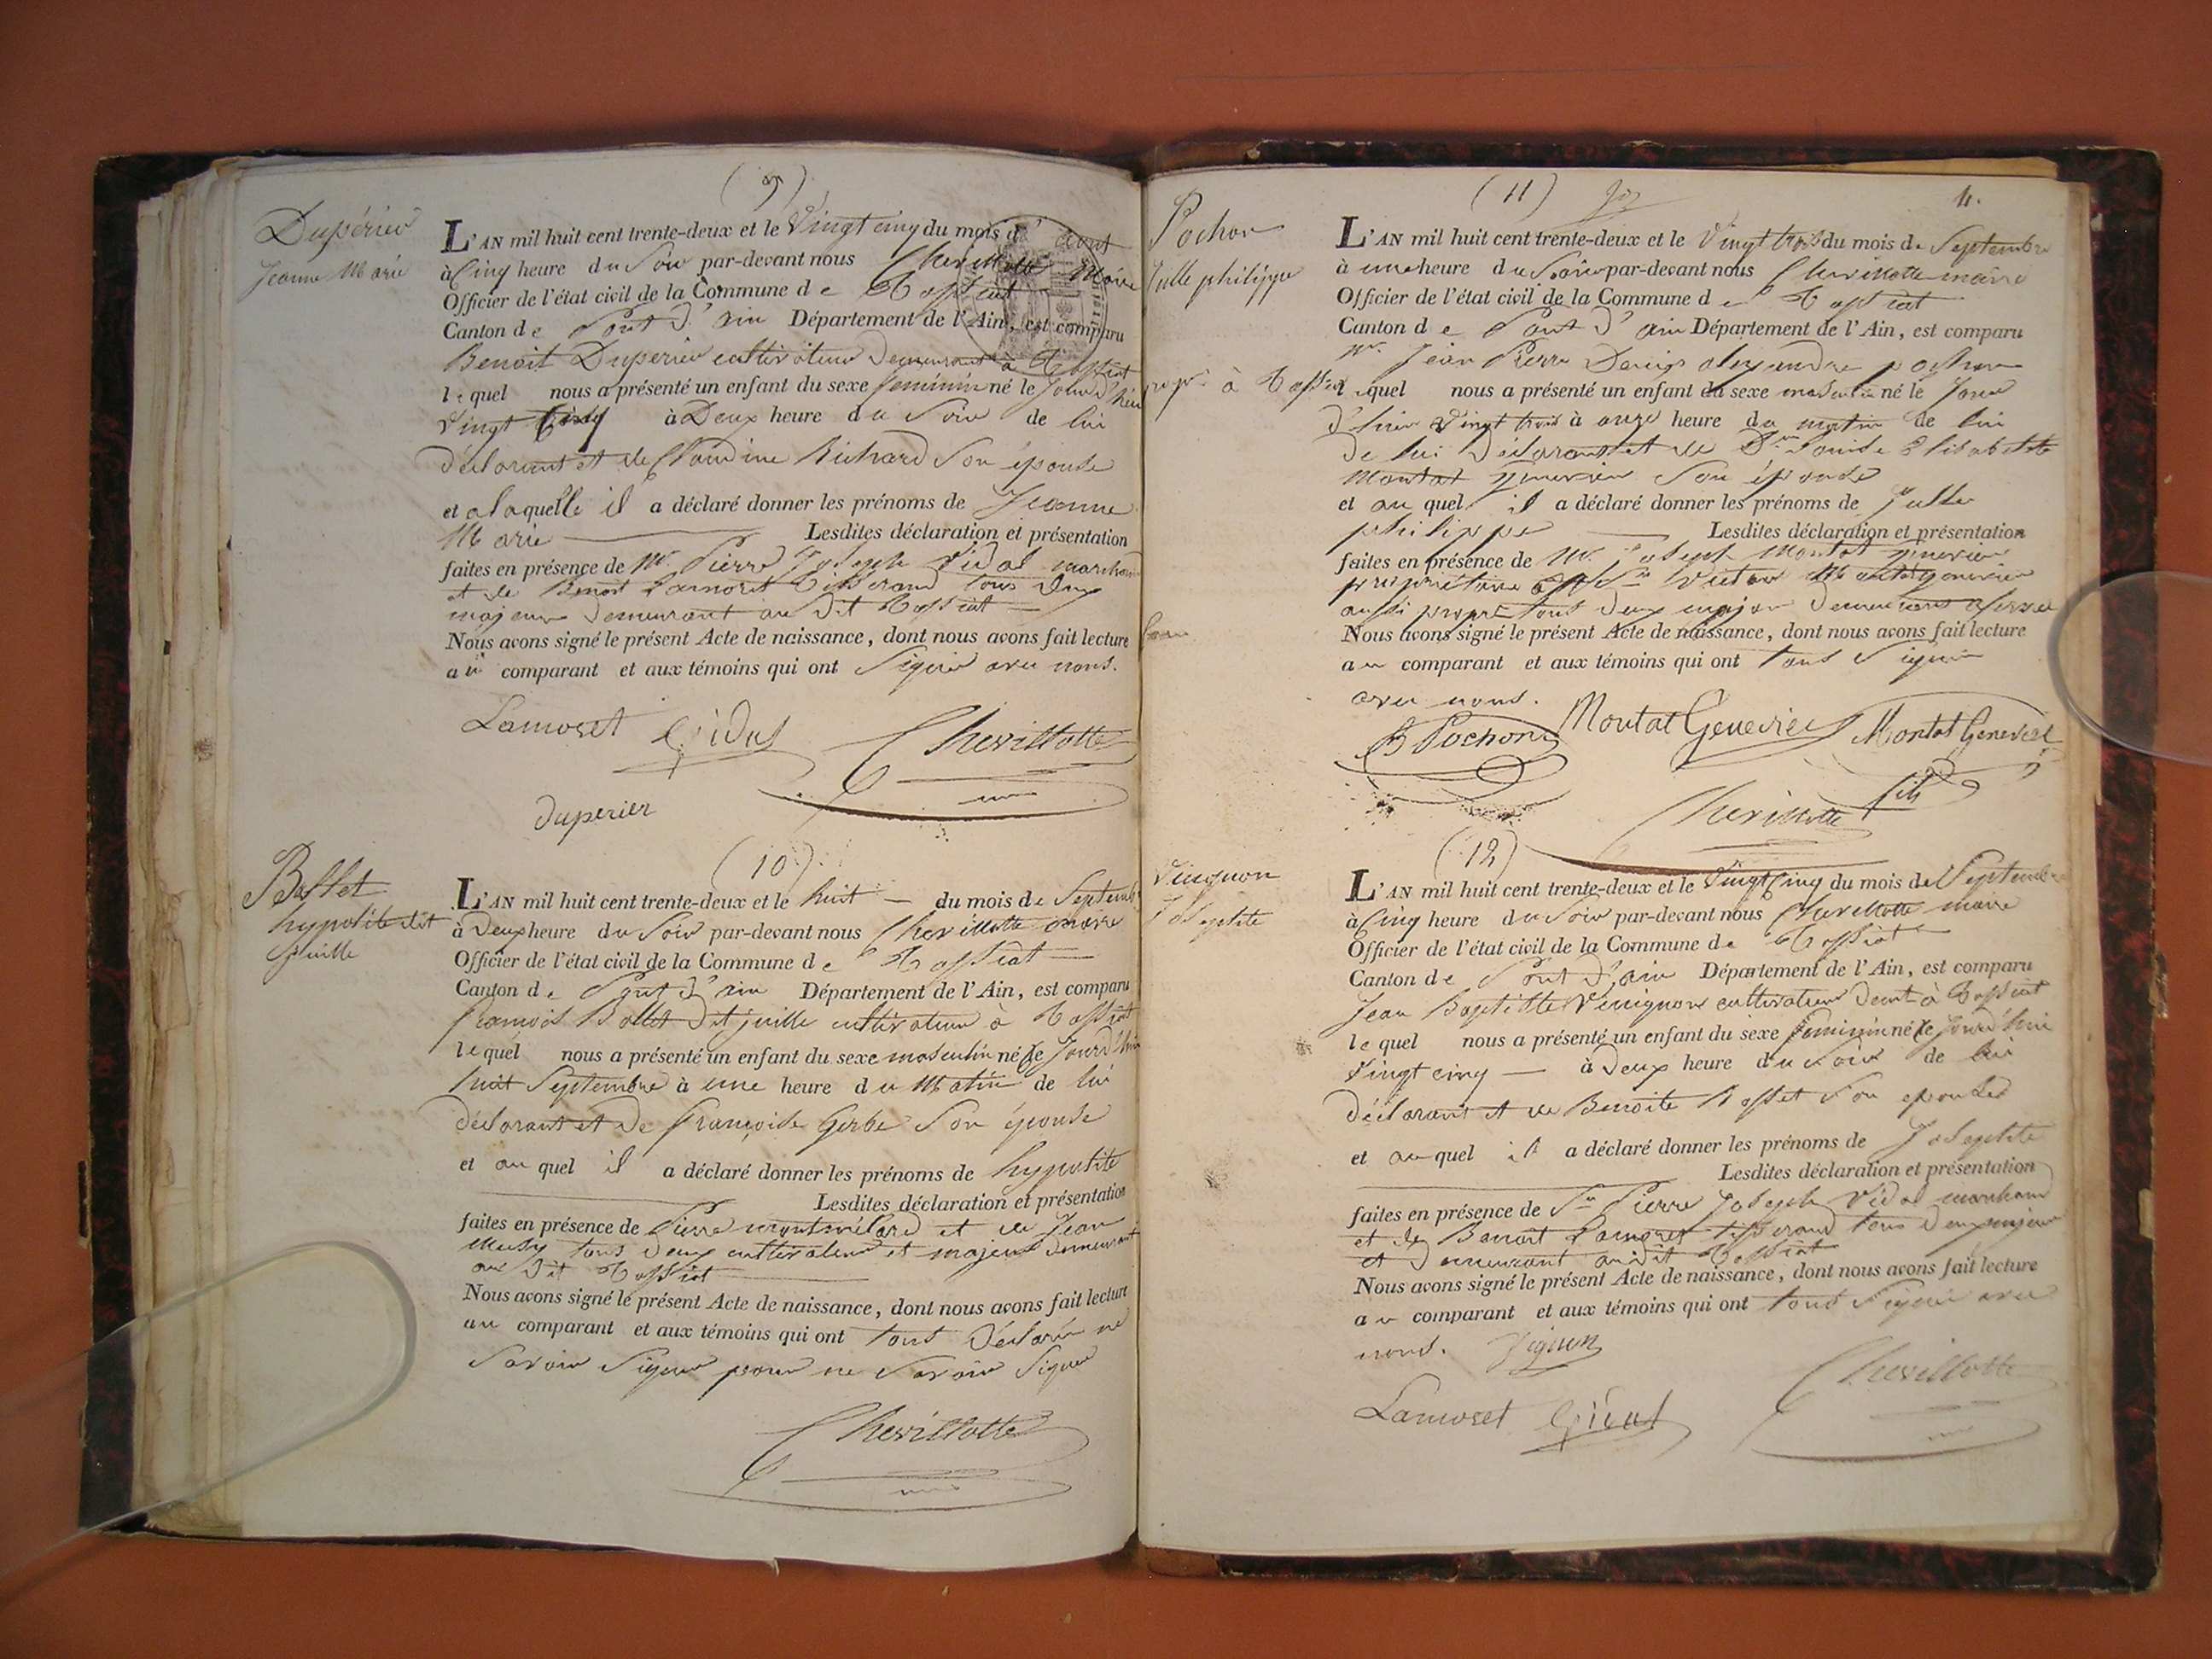 (9)
Dupérier
Jeanne Marie
L'AN mil huit cent trente-deux et le Vingt cinq du mois d' aout
à Cinq heure du Soir par-devant nous Chevillotte Maire
Officier de l'état civil de la Commune de
Canton de Pont d'ain Département de l'Ain, est comparu
Benoit Duperier cultivateur demeurant à
lequel nous a présenté un enfant du sexe feminin né le Jourd'hui
Vingt Cinq à Deux heure du Soir de lui
déclarant et de Claudine Richard Son épouse
et a laquelle il a déclaré donner les prénoms de Jeanne
Marie Lesdites déclaration et présentation
faites en présence de Mr Pierre Joseph Vidal marchand
et de Benoit Lamoret Tisserand tous deux
majeur demeurant au dit
Nous avons signé le présent Acte de naissance, dont nous avons fait lecture
au comparant et aux témoins qui ont Signé avec nous.
Lamoret Vidal Chevillotte
duperier
(10)
Bollet
hypolite dit
juille
L'AN mil huit cent trente-deux et le huit du mois de Septemb
à Deux heure du Soir par-devant nous Chevillotte maire
Officier de l'état civil de la Commune de
Canton de Pont d'ain Département de l'Ain, est comparu
françois Bollet dit juille cultivateur à
lequel nous a présenté un enfant du sexe masculin né le Jourd'hui
huit Septembre à une heure du Matin de lui
déclarant et de françoise Gerbe Son épouse
et au quel il a déclaré donner les prénoms de hypolite
Lesdites déclaration et présentation
faites en présence de Pierre montmélard et de Jean
tous deux cultivateur et majeur demeurant
au dit
Nous avons signé le présent Acte de naissance, dont nous avons fait lecture
au comparant et aux témoins qui ont tout déclaré ne
Savoir Signer pour ne Savoir Signer
Chevillotte
(11)
4.
Pochon
Julle philippe
L'AN mil huit cent trente-deux et le Vingt trois du mois de Septembre
à une heure du Soir par-devant nous Chevillotte maire
Officier de l'état civil de la Commune de
Canton de Pont d'ain Département de l'Ain, est comparu
Mr. Jean Pierre Denis alexandre pochon
propre à lequel nous a présenté un enfant du sexe masculin né le Jour
d'hier Vingt trois à onze heure du matin de lui
De lui Déclarant et de Dme Louise Elisabethe
Montat genevier Son épouse
et au quel il a déclaré donner les prénoms de Julle
philippe Lesdites déclaration et présentation
faites en présence de Mr. Joseph Montat genevier
propriétaire et Sr Victor Montat genevier
aussi propre tous deux major demeurant
Nous avons signé le présent Acte de naissance, dont nous avons fait lecture
au comparant et aux témoins qui ont tout Signé
avec nous.
Pochon Montat Genevier Montat Genevier
fils
Chevillotte
(12)
Vuignon
Josephte
L'AN mil huit cent trente-deux et le Vingt Cinq du mois de Septembre
à Cinq heure du Soir par-devant nous Chevillotte maire
Officier de l'état civil de la Commune de
Canton de Pont d'ain Département de l'Ain, est comparu
Jean Baptiste Vuignon cultivateur demt à
lequel nous a présenté un enfant du sexe feminin né le Jourd'hui
Vingt cinq à Deux heure du soir de lui
déclarant et de Benoite Rosset Son epouse
et au quel il a déclaré donner les prénoms de Josephte
Lesdites déclaration et présentation
faites en présence de Sr Pierre Joseph Vidal marchand
et de Benoit Lamoret tisserand tous deux majeur
et demeurant au dit
Nous avons signé le présent Acte de naissance, dont nous avons fait lecture
au comparant et aux témoins qui ont tout Signé avec
nous. Vignon
Lamoret Vidal Chevillotte